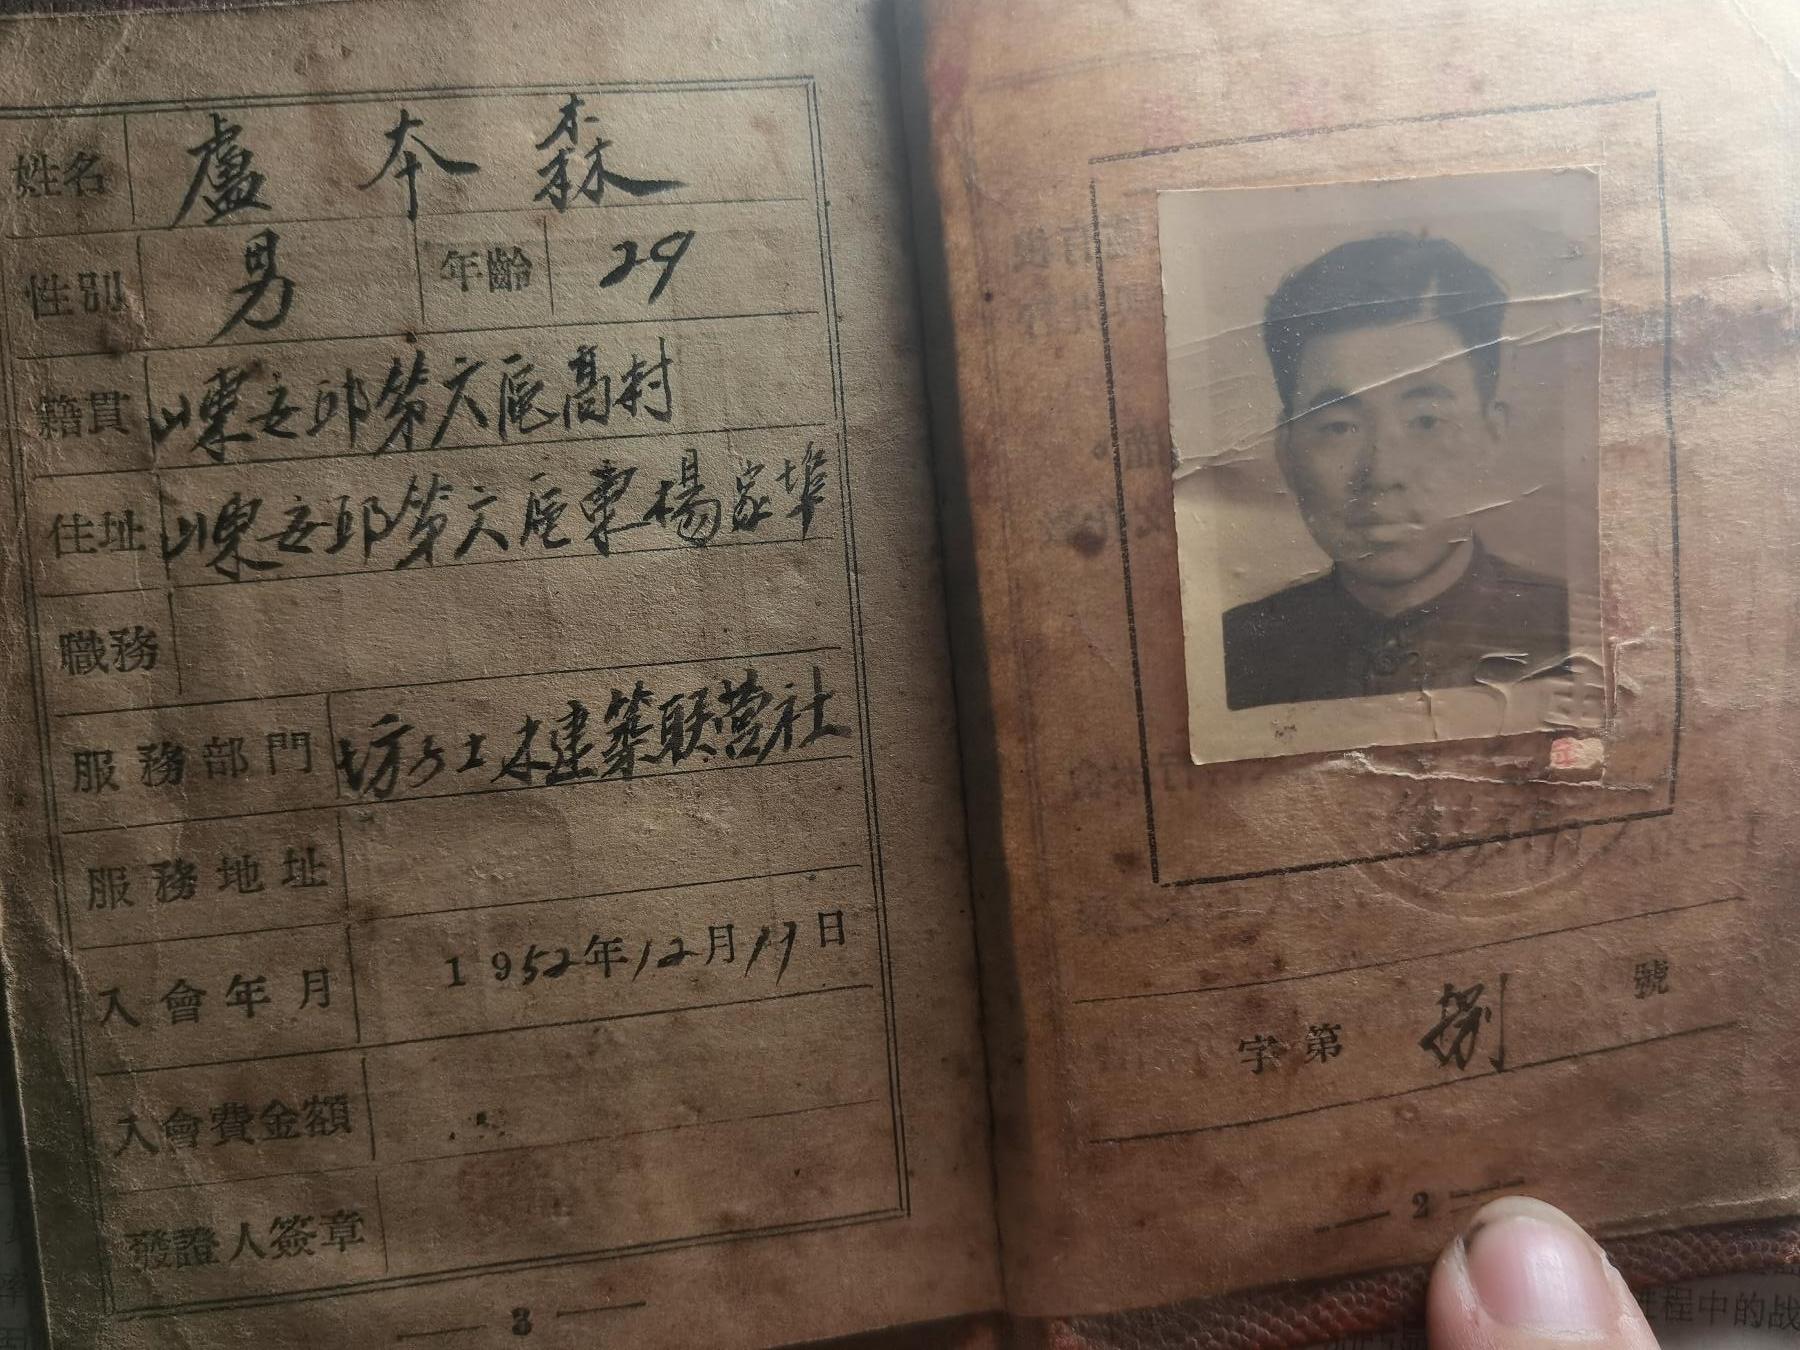 姓名 盧本森
性別 男 年齡 29
籍貫 山東安邱第六區高村
住址 山東安邱第六區東楊家埠
職務
服務部門 坊子土木建築联营社
服務地址
入會年月 1952年12月11日
入會費金額
發證人簽章
3
字第 捌 號
2
程中的战